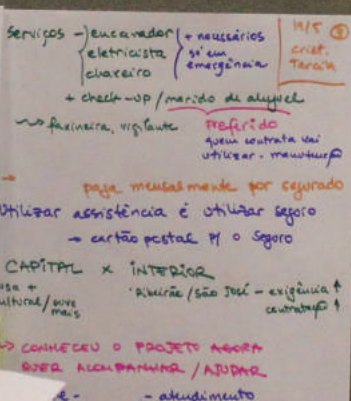 serviços - encanador + necessários
eletricista só em
chaveiro emergência
19/5
crist.
+ check-up / marido de aluguel
faxineira, vigilante preferido
quem contrata vai
utilizar.
paga mensalmente por segurado
utilizar assistência é utilizar seguro
→ cartão postal p/ o seguro
CAPITAL x INTERIOR
usa + Ribeirão / São José - exigência ↑
cultural / ouve contratação ↑
mais
CONHECEU O PROJETO AGORA
QUER ACOMPANHAR / AJUDAR
- atendimento